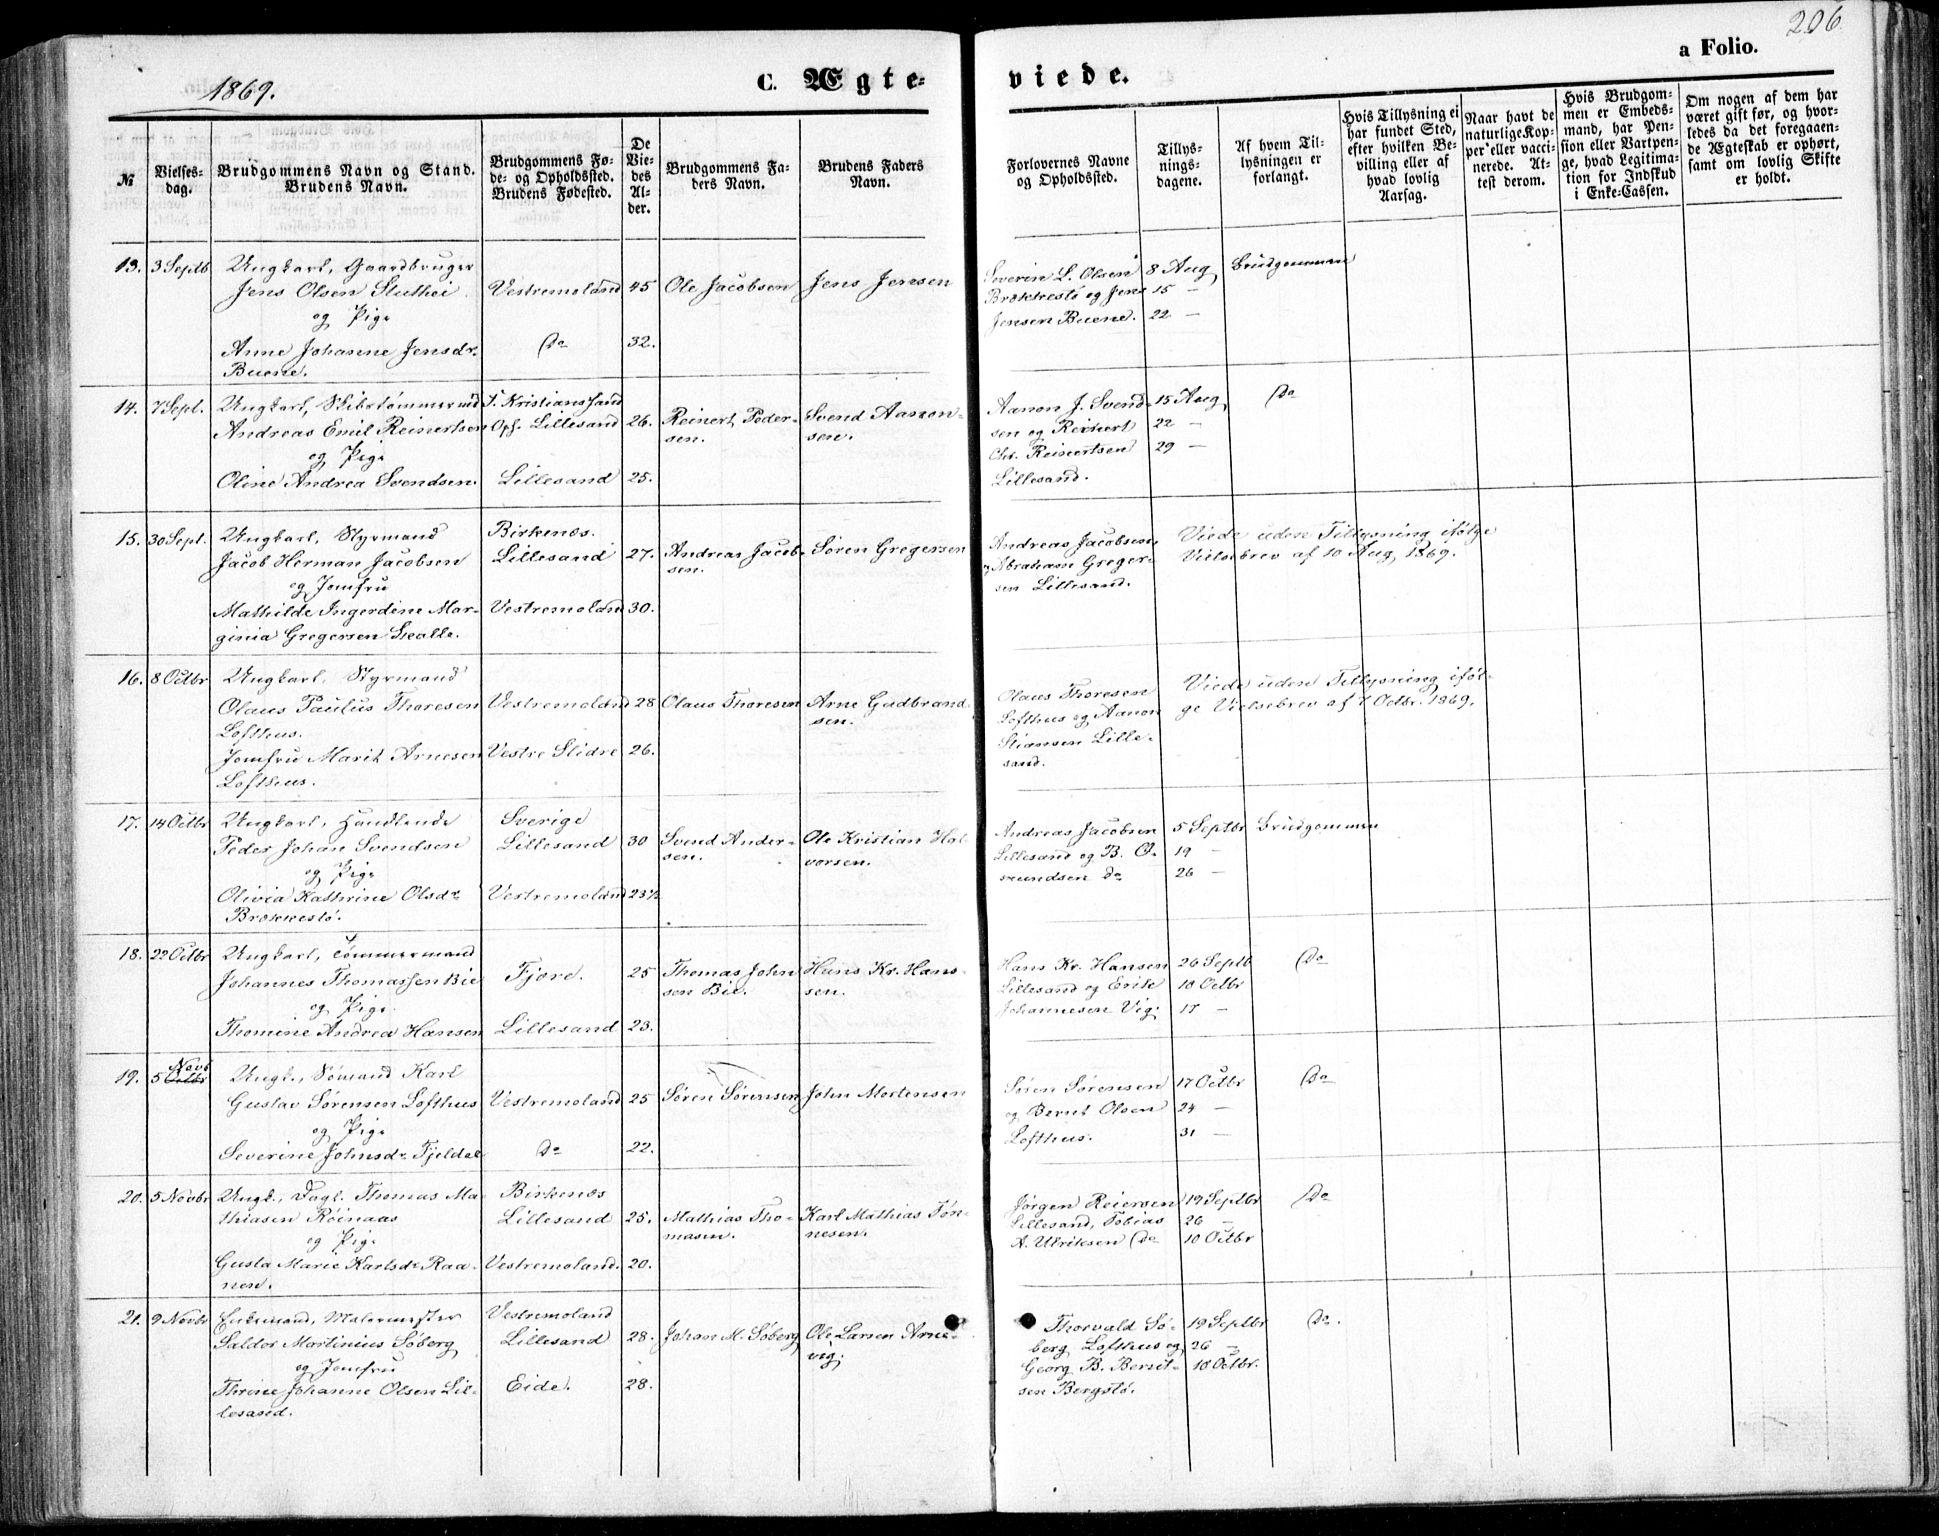 206
a Folio.
1869.
C. Ægteviede.
№
Vielsesdag.
Brudgommens Navn og Stand.
Brudens Navn.
Brudgommens Føde- og Opholdssted.
Brudens Fødested.
De Viedes Alder.
Brudgommens Faders Navn.
Brudens Faders Navn.
Forlovernes Navne og Opholdssted.
Tillysningsdagene.
Af hvem Tillysningen er forlangt.
Hvis Tillysning ei har fundet Sted, efter hvilken Bevilling eller af hvad lovlig Aarsag.
Naar havt de naturlige Kopper eller vaccinerede. Attest derom.
Hvis Brudgommen er Embedsmand, har Pension eller Vartpenge, hvad Legitimation for Indskud i Enke-Cassen.
Om nogen af dem har været gift før, og hvorledes da det foregaaende Ægteskab er ophørt, samt om lovlig Skifte er holdt.
13. 3 Septb Ungkarl, Gaardbruger
Jens Olsen Sluthei Vestremoland 45 Ole Jacobsen Jens Jensen
og Pige
Anne Johanne Jensdr. Do 32.
Buene.
Severin L. Olsen 8 Aug Brudgommen
Brækkestø og Jens 15 —
Jensen Buene. 22 —
14. 7 Sept. Ungkarl, Skibstømmermd F. Kristianssand
Andreas Emil Reinertsen Oph. Lillesand 26. Reinert Pedersen. Svend Aanonsen.
og Pige
Oline Andrea Svendsen. Lillesand 25.
Aanon J. Svend- 15 Aug Do
sen og Reinert 22 —
Chr. Reinertsen 29 —
Lillesand.
15. 30 Sept. Ungkarl, Styrmand Birkenæs.
Jacob Herman Jacobsen Lillesand 27. Andreas Jacobsen. Søren Gregersen
og Jomfru
Mathilde Ingerdine Mar- Vestremoland 30.
ginia Gregersen Skalle.
Andreas Jacobsen
og Abraham Greger-
sen Lillesand.
Viede uden Tillysning ifølge
Vielsebrev af 10 Aug 1869.
16. 8 Octbr Ungkarl, Styrmand
Olaus Paulus Thoresen Vestremoland 28 Olaus Thoresen Arne Gudbrandsen.
Lofthus.
Jomfru Marit Arnesen Vestre Slidre 26.
Lofthus.
Olaus Thoresen
Lofthus og Aanon
Stiansen Lille-
sand.
Viede uden Tillysning iføl-
ge Vielsebrev af 7 Octbr. 1869.
17. 14 Octbr Ungkarl, Handlende Sverige
Peder Johan Svendsen Lillesand 30 Svend Andersen. Ole Kristian Halvorsen.
og Pige
Olivia Kathrine Olsdr Vestremoland 23½
Brækkestø.
Andreas Jacobsen 5 Septbr Brudgommen
Lillesand og B. O- 19 —
smundsen do 26 —
18. 22 Octbr Ungkarl, Tømmermand
Johannes Thomassen Bie Fjære. 25 Thomas Johnsen Bie. Hans Kr. Hansen.
og Pige
Thomine Andrea Hansen Lillesand 23.
Hans Kr. Hansen 26 Septb Do
Lillesand og Erik 10 Octbr
Johannesen Vig. 17 —
19. 5 Novb Ungk., Sømand Karl
Gustav Sørensen Lofthus Vestremoland 25 Søren Sørensen John Mortensen
og Pige
Severine Johnsdr Fjeldal Do 22.
Søren Sørensen 17 Octbr Do
og Bernt Olsen 24 —
Lofthus. 31 —
20. 5 Novbr Ungk., Dagl. Thomas Ma- Birkenæs
thiasen Röinaas Lillesand 25. Mathias Thomasen. Karl Mathias Tønnesen.
og Pige
Gusta Marie Karlsdr Raa- Vestremoland. 20.
nen.
Jørgen Reiersen 19 Septbr Do
Lillesand, Tobias 26 —
A. Ulriksen Do 10 Octbr
21. 9 Novbr Enkemand, Malermester Vestremoland
Saldor Martinius Söberg Lillesand 28. Johan M. Søberg Ole Larsen Arnevig.
og Jomfru
Thrine Johanne Olsen Lil- Eide. 28.
lesand.
Thorvald Sø- 19 Septbr Do.
berg Lofthus og 26 —
Georg B. Bersit- 10 Octbr.
sen Bergstø.